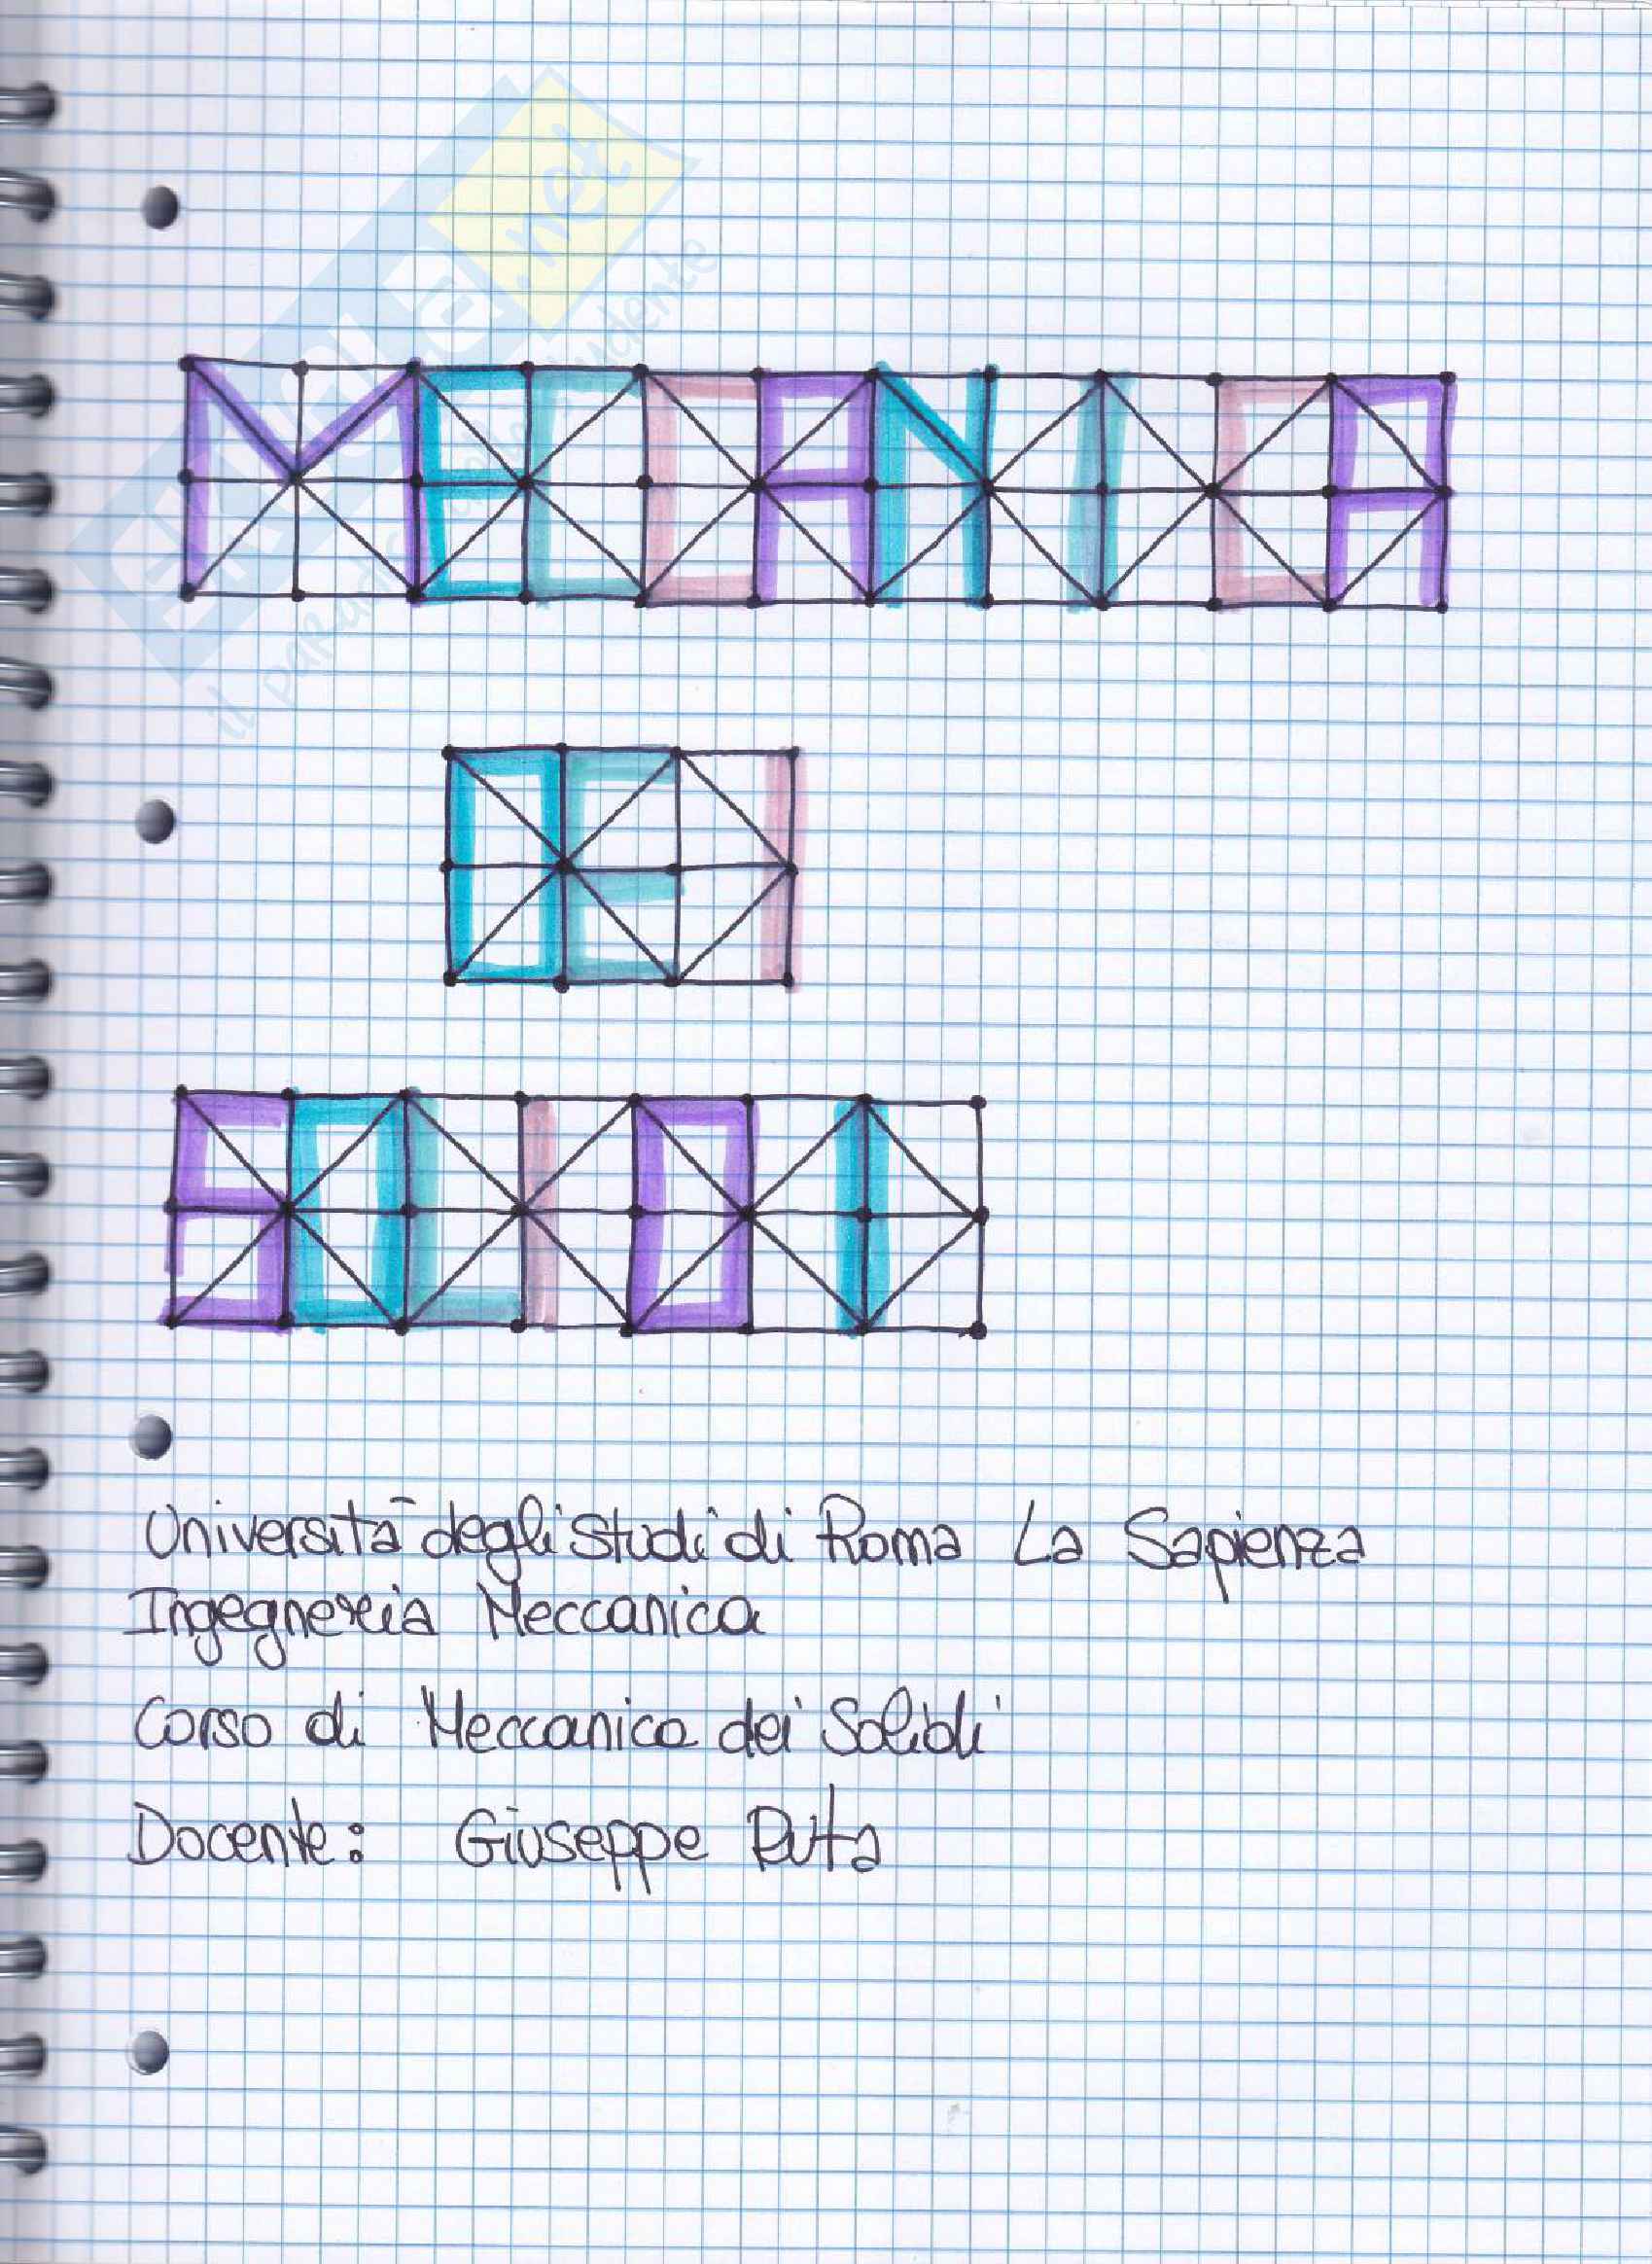 SKUOLA.net
il paradiso dello studente
MECCANICA
DEI
SOLIDI
Università degli Studi di Roma La Sapienza
Ingegneria Meccanica
Corso di Meccanica dei Solidi
Docente: Giuseppe Ruta